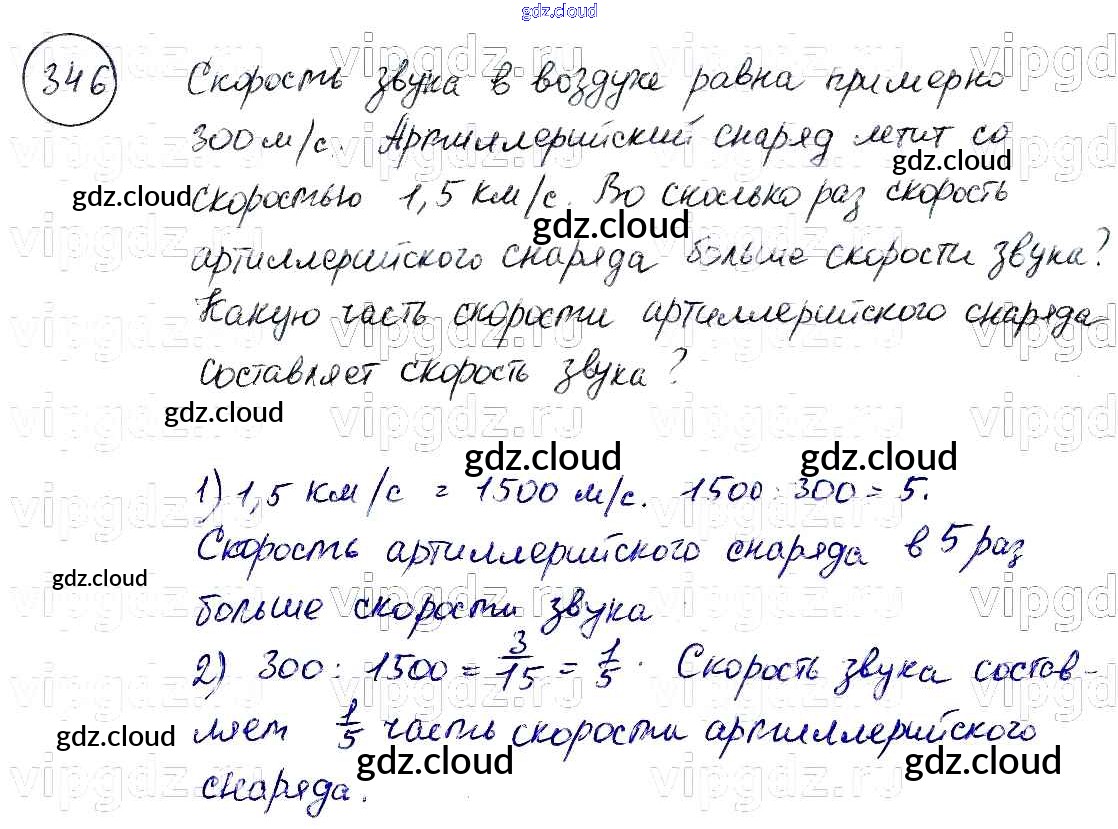 gdz.cloud
346
Скорость звука в воздухе равна примерно
300 м/с. Артиллерийский снаряд летит со
gdz.cloud
gdz.cloud скоростью 1,5 км/с. Во сколько раз скорость
gdz.cloud
артиллерийского снаряда больше скорости звука?
Какую часть скорости артиллерийского снаряда
составляет скорость звука?
gdz.cloud
gdz.cloud gdz.cloud
1) 1,5 км/с = 1500 м/с. 1500 : 300 = 5.
Скорость артиллерийского снаряда в 5 раз
gdz.cloud
больше скорости звука
2) 300 : 1500 = 3/15 = 1/5. Скорость звука состав-
ляет 1/5 часть скорости артиллерийского
gdz.cloud gdz.cloud gdz.cloud
снаряда.
vipgdz.ru